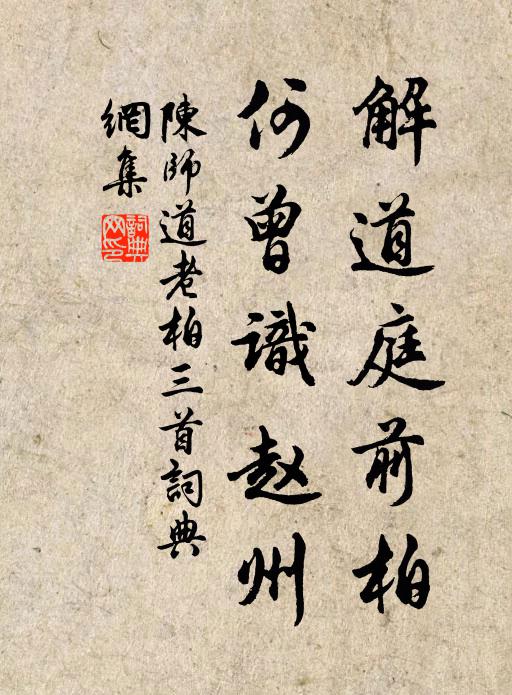 解道庭前柏
何曾識赵州
陳師道老柏三首詞典
網集
詞典
网印